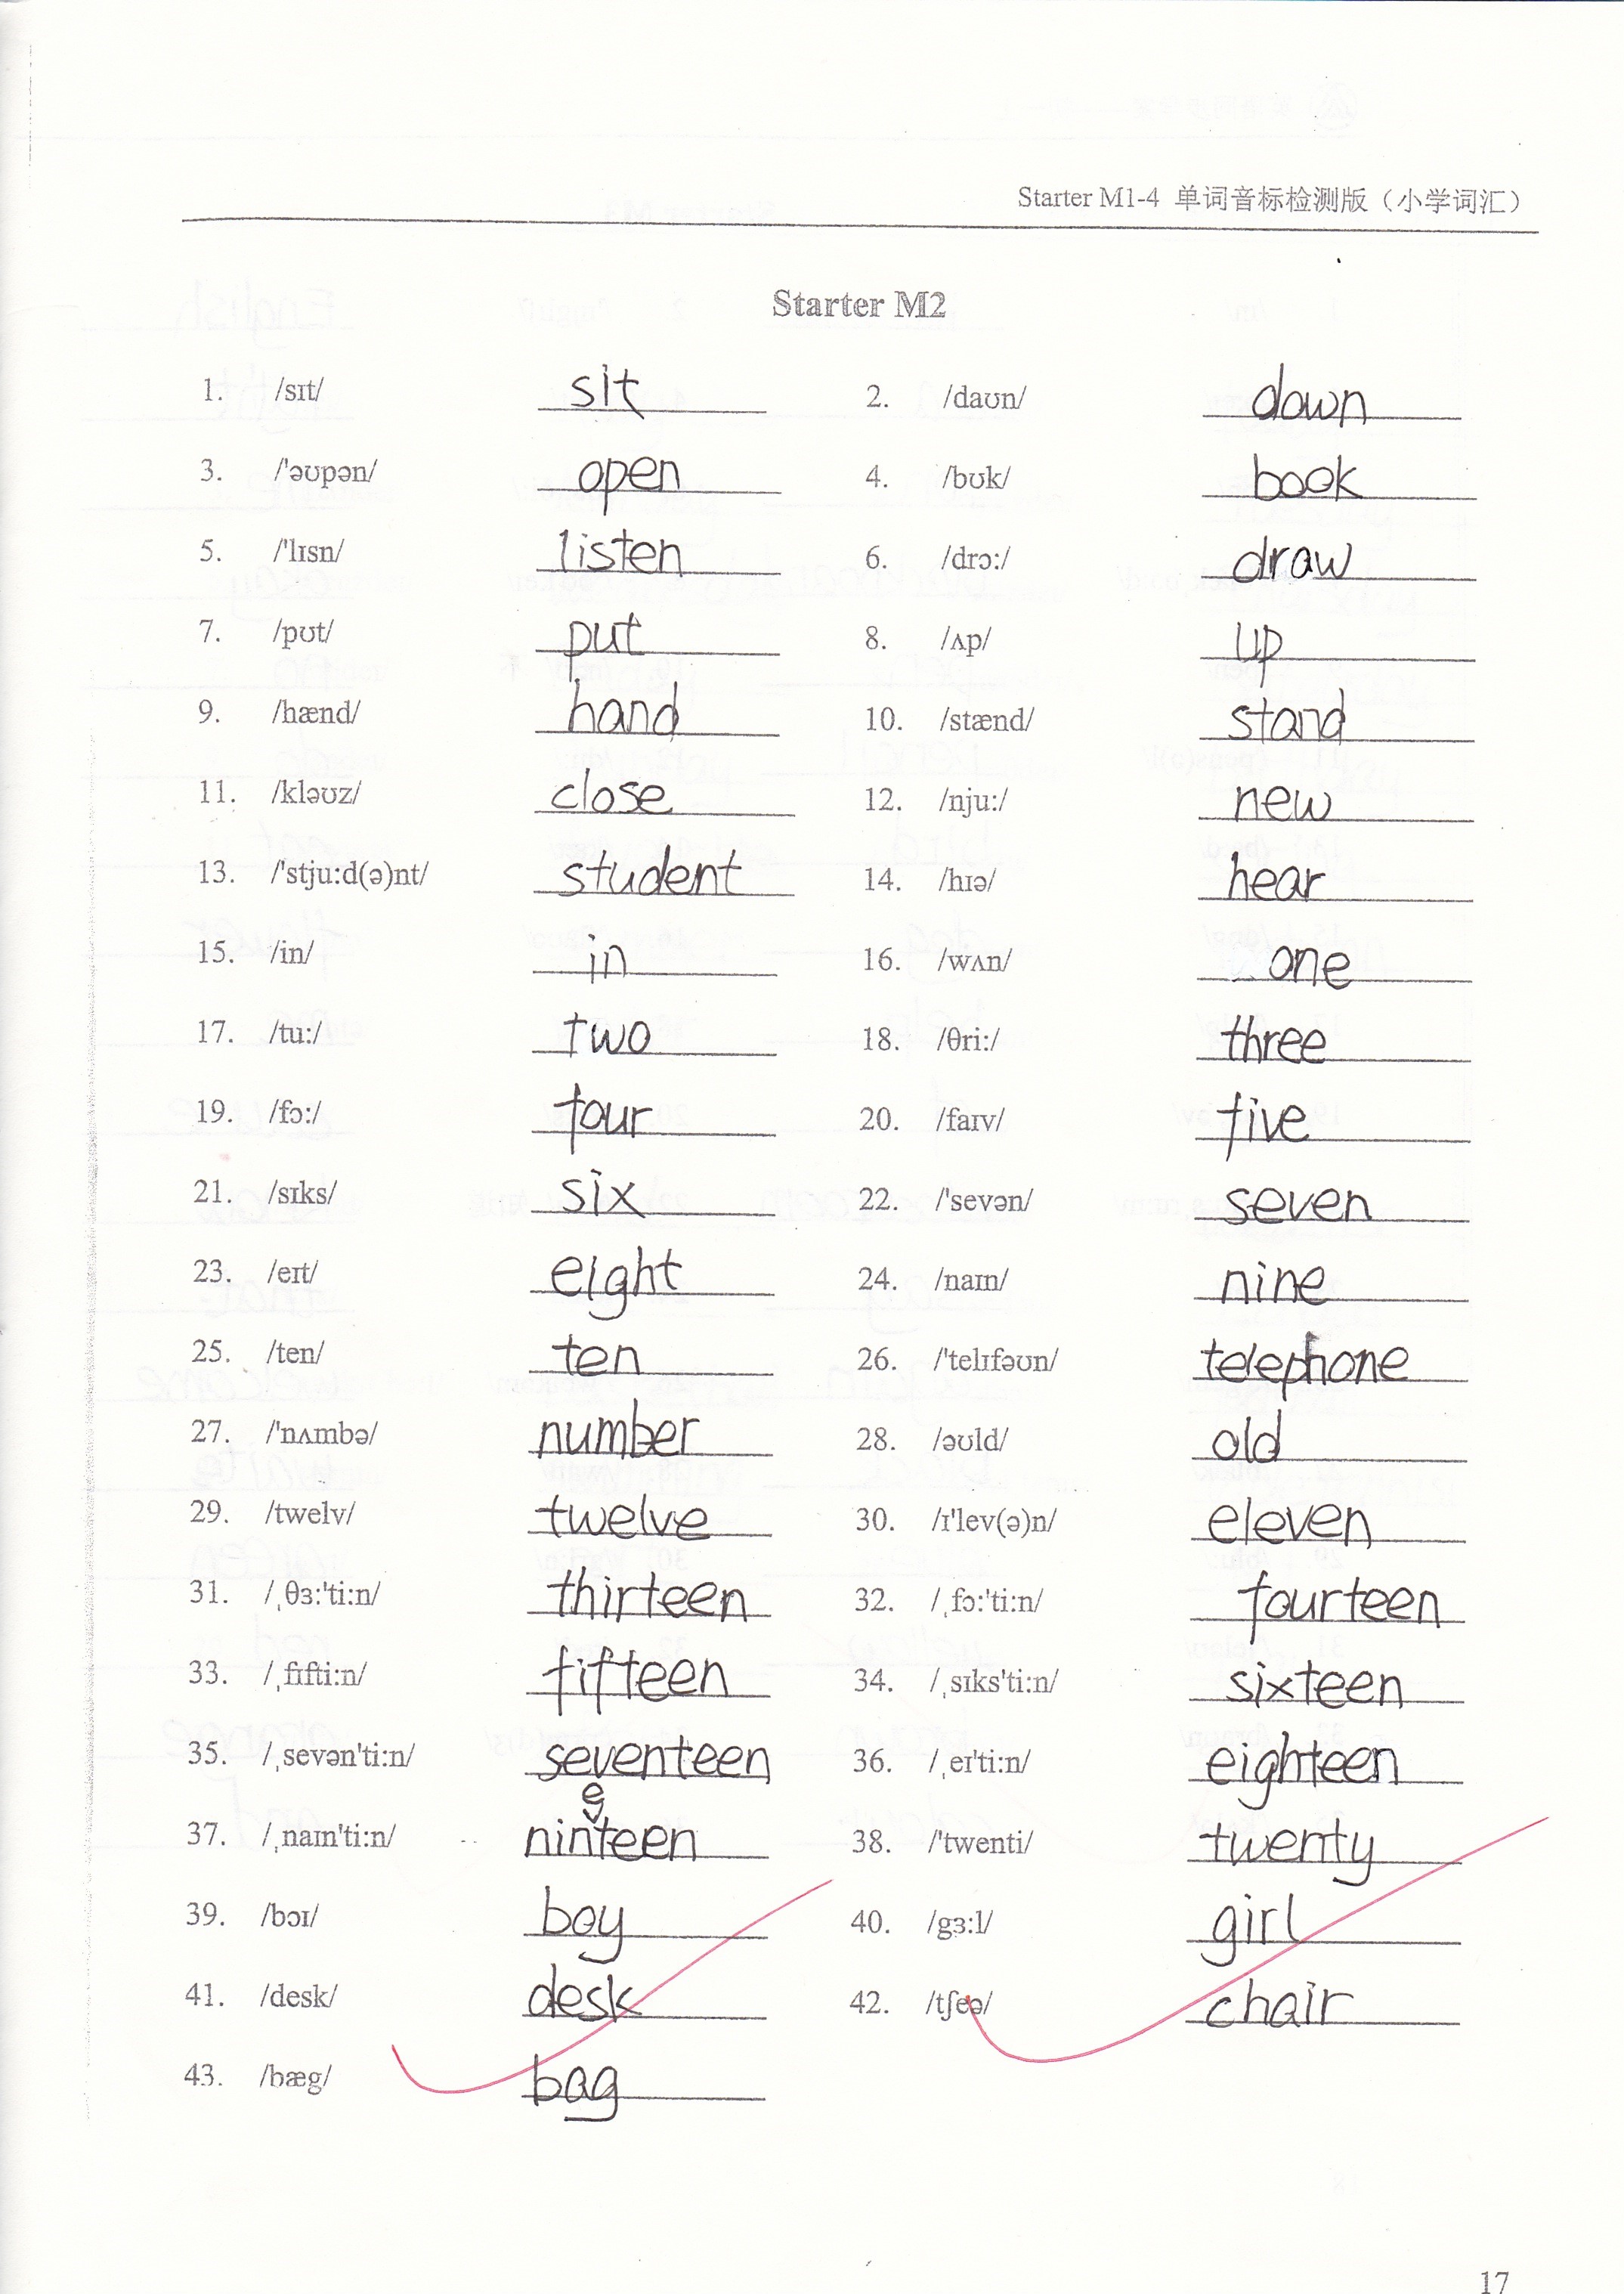 Starter M1-4 单词音标检测版（小学词汇）
Starter M2
1. /sɪt/ sit 2. /daʊn/ down
3. /'əʊpən/ open 4. /bʊk/ book
5. /'lɪsn/ listen 6. /drɔ:/ draw
7. /pʊt/ put 8. /ʌp/ up
9. /hænd/ hand 10. /stænd/ stand
11. /kləʊz/ close 12. /nju:/ new
13. /'stju:d(ə)nt/ student 14. /hɪə/ hear
15. /in/ in 16. /wʌn/ one
17. /tu:/ two 18. /θri:/ three
19. /fɔ:/ four 20. /faɪv/ five
21. /sɪks/ six 22. /'sevən/ seven
23. /eɪt/ eight 24. /naɪn/ nine
25. /ten/ ten 26. /'telɪfəʊn/ telephone
27. /'nʌmbə/ number 28. /əʊld/ old
29. /twelv/ twelve 30. /ɪ'lev(ə)n/ eleven
31. /ˌθɜ:'ti:n/ thirteen 32. /ˌfɔ:'ti:n/ fourteen
33. /ˌfɪfti:n/ fifteen 34. /ˌsɪks'ti:n/ sixteen
35. /ˌsevən'ti:n/ seventeen 36. /ˌeɪ'ti:n/ eighteen
37. /ˌnaɪn'ti:n/ nineteen 38. /'twenti/ twenty
39. /bɔɪ/ boy 40. /gɜ:l/ girl
41. /desk/ desk 42. /tʃeə/ chair
43. /bæg/ bag
17